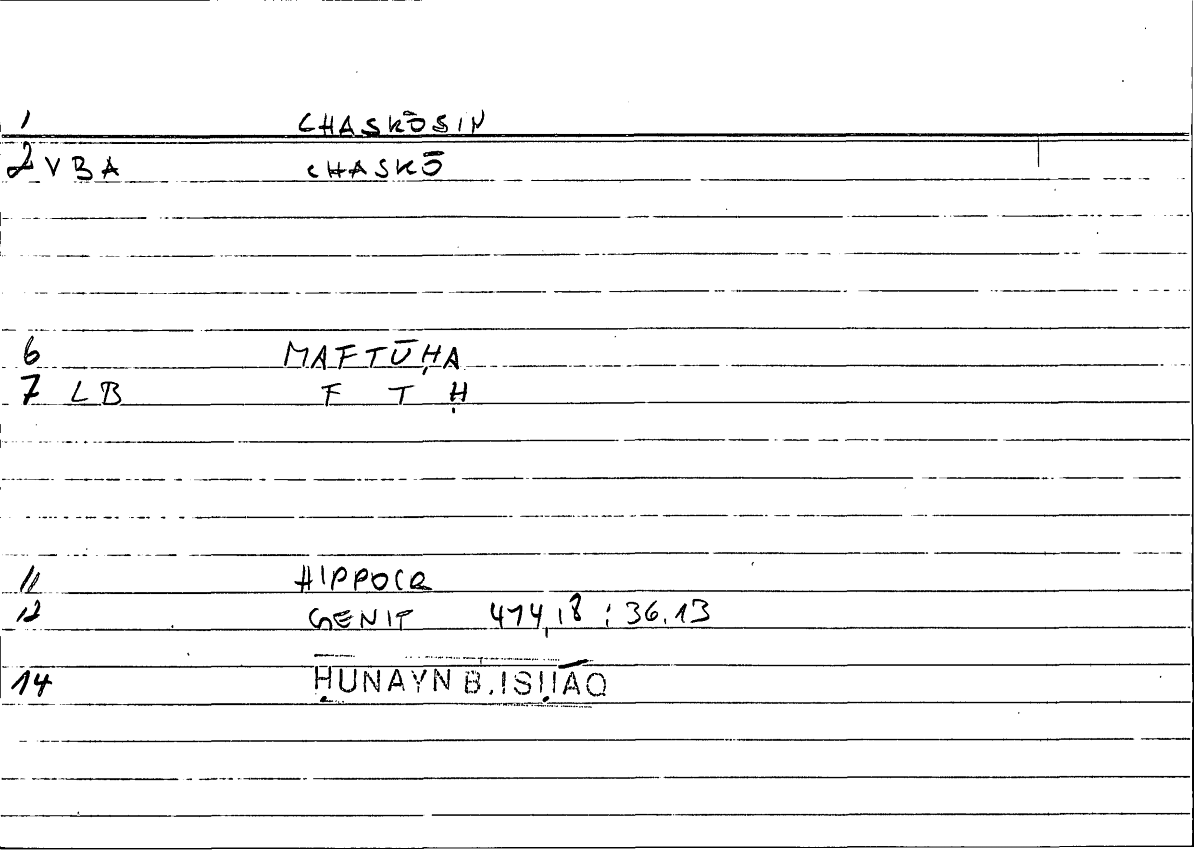 1 CHASKŌSIN
2 VBA CHASKŌ
6 MAFTŪḤA
7 LB F T Ḥ
11 HIPPOCR
12 GENIT 474,18 ; 36.13
14 ḤUNAYN B. ISḤĀQ